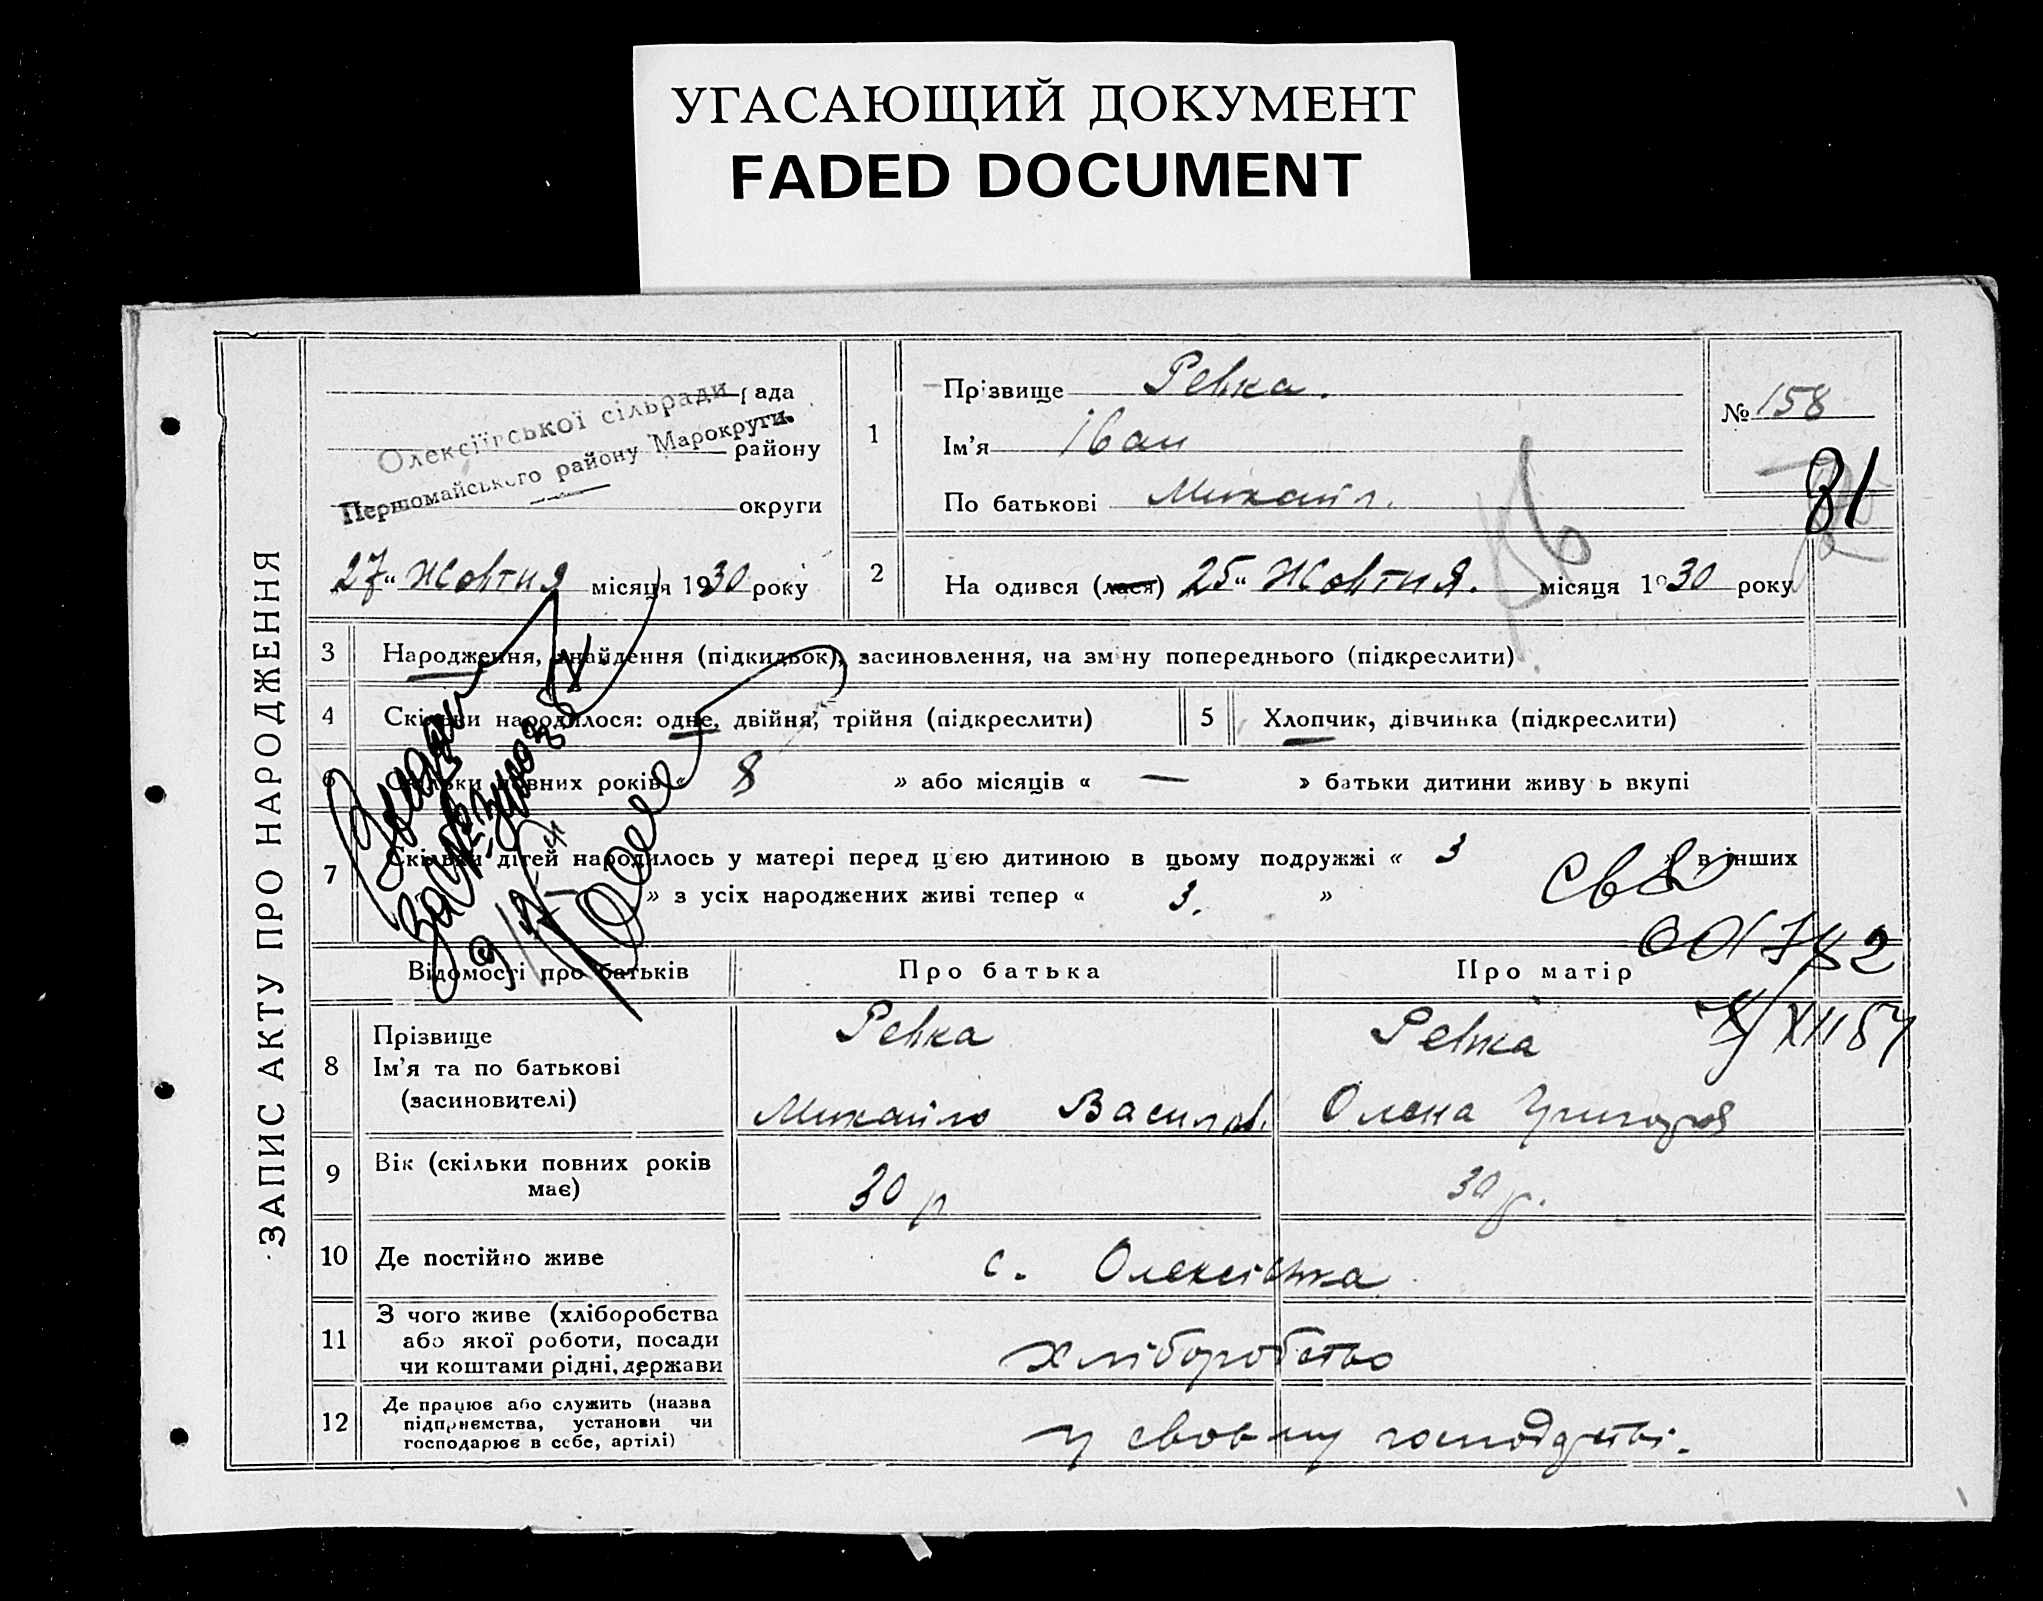 УГАСАЮЩИЙ ДОКУМЕНТ
FADED DOCUMENT
ЗАПИС АКТУ ПРО НАРОДЖЕННЯ
рада
Олексіївської сільради
району
Першомайського району Марокруги.
округи
27 " Жовтня місяця 1930 року
1
Прізвище Ревка.
Ім'я Іван
По батькові Михайл.
№ 158
81
2
На одився (лася) 25 " Жовтня. місяця 1930 року
3 Народження, знайдення (підкидьок), засиновлення, на зміну попереднього (підкреслити)
4 Скільки народилося: одне, двійня, трійня (підкреслити)
5 Хлопчик, дівчинка (підкреслити)
6 Скільки повних років « 8 » або місяців « — » батьки дитини живуть вкупі
7 Скільки дітей народилось у матері перед цією дитиною в цьому подружжі « 3 » в інших
» з усіх народжених живі тепер « 3. »
Відомості про батьків
Про батька
Про матір
8 Прізвище
Ім'я та по батькові
(засиновителі)
Ревка
Михайло Василов.
Ревка
Олена Григоров
9 Вік (скільки повних років
має)
30 р
30 р.
10 Де постійно живе
с. Олексієвка
11 З чого живе (хліборобства
або якої роботи, посади
чи коштами рідні, держави
хліборобство
12 Де працює або служить (назва
підприємства, установи чи
господарює в себе, артілі)
у своєму господстві.